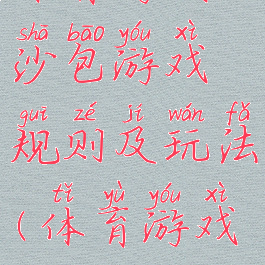 shā bāo yóu xì
沙包游戏
guī zé jí wán fǎ
规则及玩法
tǐ yù yóu xì
(体育游戏